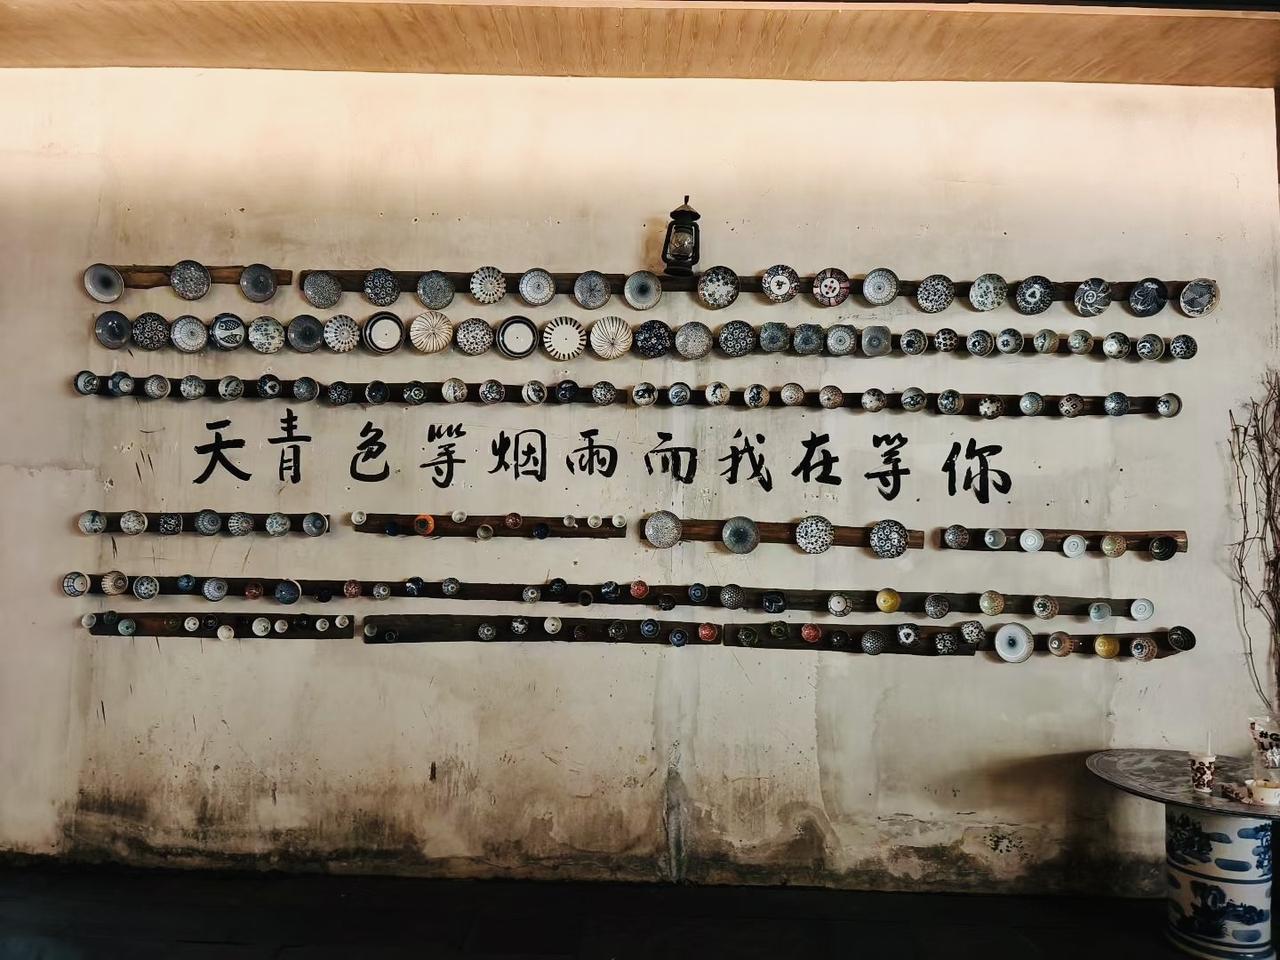 天青色等烟雨而我在等你